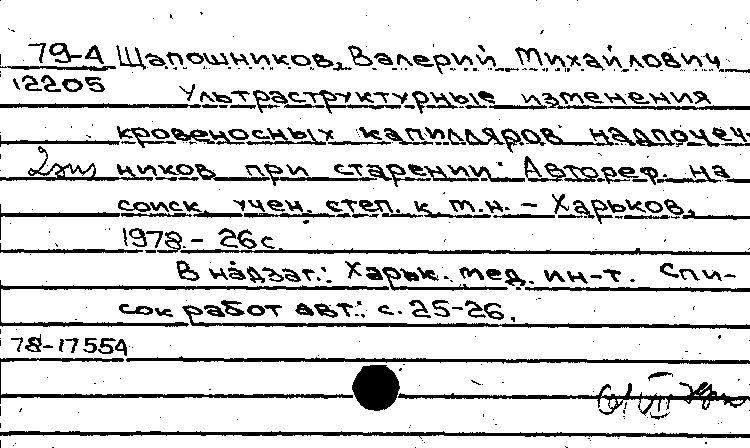 79-4 Шапошников, Валерий Михайлович
12205 Ультраструктурные изменения
кровеносных капилляров надпочеч-
2экз ников при старении: Автореф. на
соиск. учен. степ. к.м.н. – Харьков,
1978. – 26 с.
В надзаг.: Харьк. мед. ин-т. Спи-
сок работ авт.: с. 25-26.
78-17554